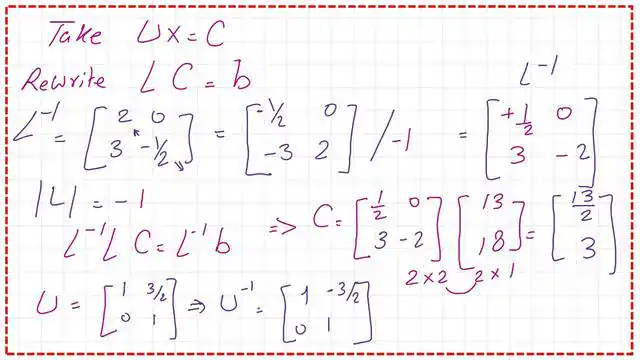 Take UX = C
Rewrite L C = b
L⁻¹
L⁻¹ = [2 0; 3 -1/2] = [-1/2 0; -3 2] / -1 = [+1/2 0; 3 -2]
|L| = -1
L⁻¹L C = L⁻¹ b ⇒ C = [1/2 0; 3 -2] [13; 18] = [13/2; 3]
2×2 2×1
U = [1 3/2; 0 1] ⇒ U⁻¹ = [1 -3/2; 0 1]